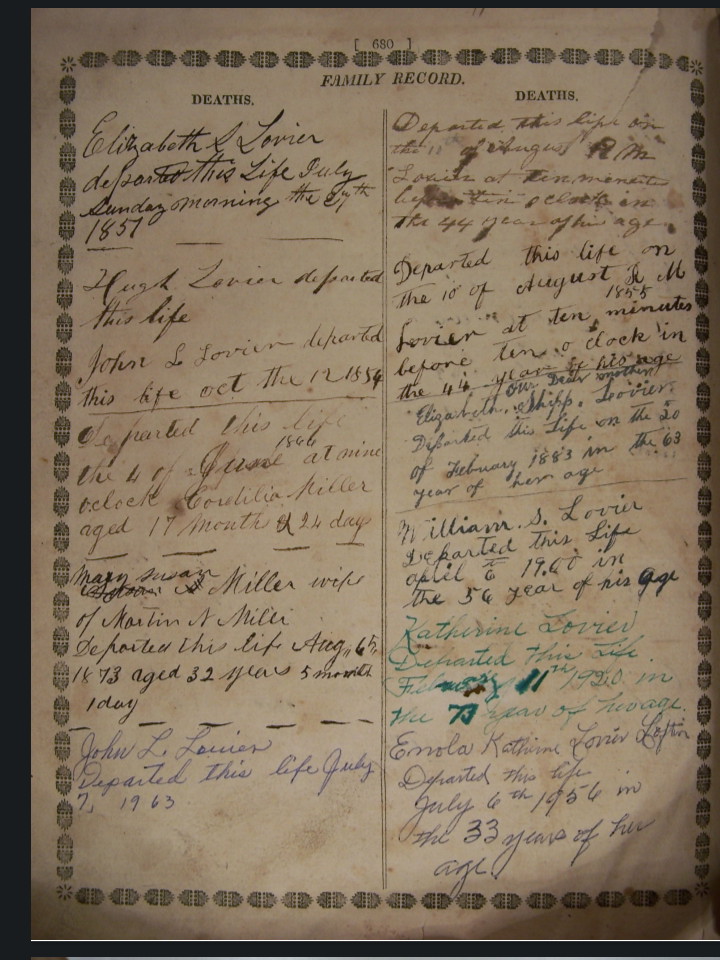 [ 680 ]
FAMILY RECORD.
DEATHS.
Elizabeth S Lovier
departed this Life July
Sunday morning the 27th
1851
Hugh Lovier departed
this life
John L Lovier departed
this life oct the 12 1854
Departed this life
the 4 of June 1866 at nine
oclock Cordilia Miller
aged 17 Month & 24 days
Mary Susan
Miller wife
of Martin N Miller
Departed this life Aug,, 6th,
1873 aged 32 years 5 month
1 day
John L. Lovier
Departed this life July
7, 1963
DEATHS.
Departed this life on
the 10 of August R M
Lovier at ten minutes
before ten oclock in
the 44 year of his age
Departed this life on
the 10 of August 1855 R M
Lovier at ten minutes
before ten o clock in
the 44 year of his age
Our Dear mother
Elizabeth Shipp. Lovier
Departed this Life on the 20
of February 1883 in the 63
year of her age
William. S. Lovier
Departed this Life
april 6 in
the 56 year of his age
Katherine Lovier
Departed This Life
February 11th 1920 in
the 73 year of her age.
Enola Katherine Lovier Loftin
Departed this life
July 6th 1956 in
the 33 years of her
age.